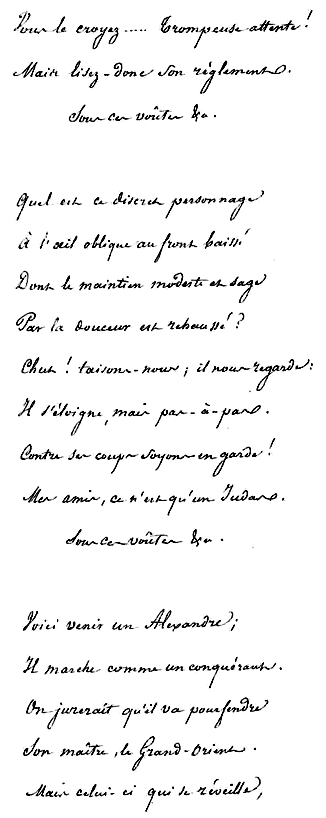 Vous le croyez..... Trompeuse attente!
Mais lisez-donc son réglement.
Sous ces voûtes &a.
Quel est ce discret personnage
À l'œil oblique au front baissé
Dont le maintien modeste et sage
Par la douceur est rehaussé?
Chut! taisons-nous; il nous regarde:
Il s'éloigne, mais pas-à-pas.
Contre ses coups soyons en garde!
Mes amis, ce n'est qu'un Judas.
Sous ces voûtes &a.
Voici venir un Alexandre;
Il marche comme un conquérant.
On jurerait qu'il va pourfendre
Son maître, le Grand-Orient.
Mais celui-ci qui se réveille,